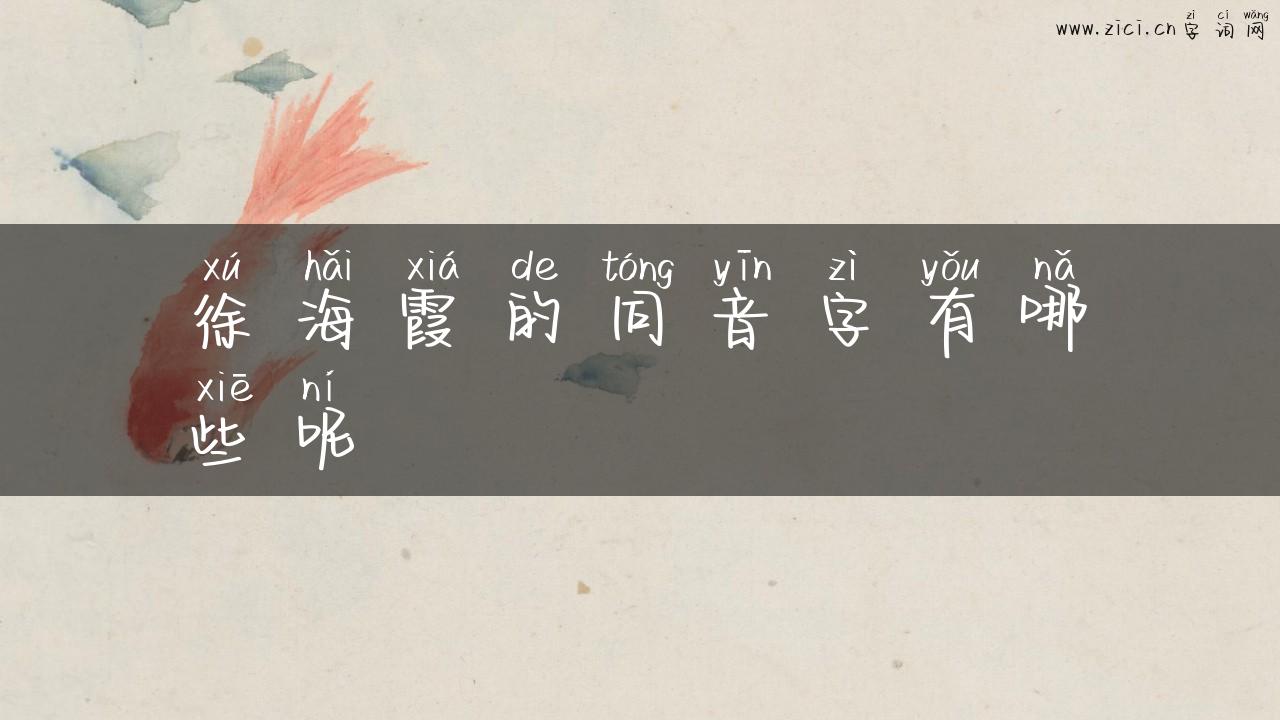 zì cí wǎng
www.zici.cn 字 词 网
xú hǎi xiá de tóng yīn zì yǒu nǎ
徐 海 霞 的 同 音 字 有 哪
xiē ní
些 呢